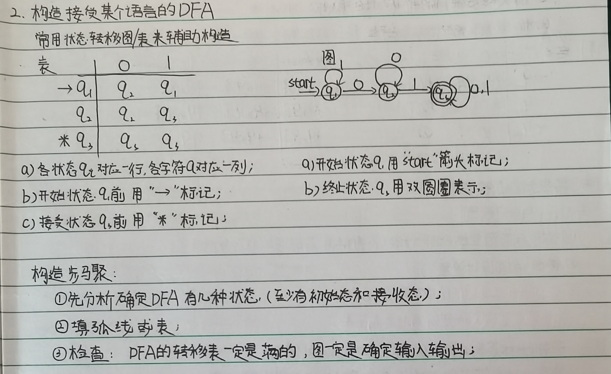 2. 构造接受某个语言的DFA
常用状态转移图/表来辅助构造
表 0 1
→q₁ q₂ q₁
q₂ q₂ q₃
*q₃ q₃ q₃
图
start q₁ 1 0 q₂ 0 1 q₃ 0,1
a) 各状态q对应一行,各字符a对应一列;
b) 开始状态q₁前用"→"标记;
c) 接受状态q₃前用"*"标记;
a) 开始状态q₁用"start"箭头标记;
b) 终止状态q₃用双圆圈表示;
构造步骤:
①先分析确定DFA有几种状态,(至少有初始态和接收态);
②填弧线或表;
③检查: DFA的转移表一定是满的,图一定是确定输入输出;